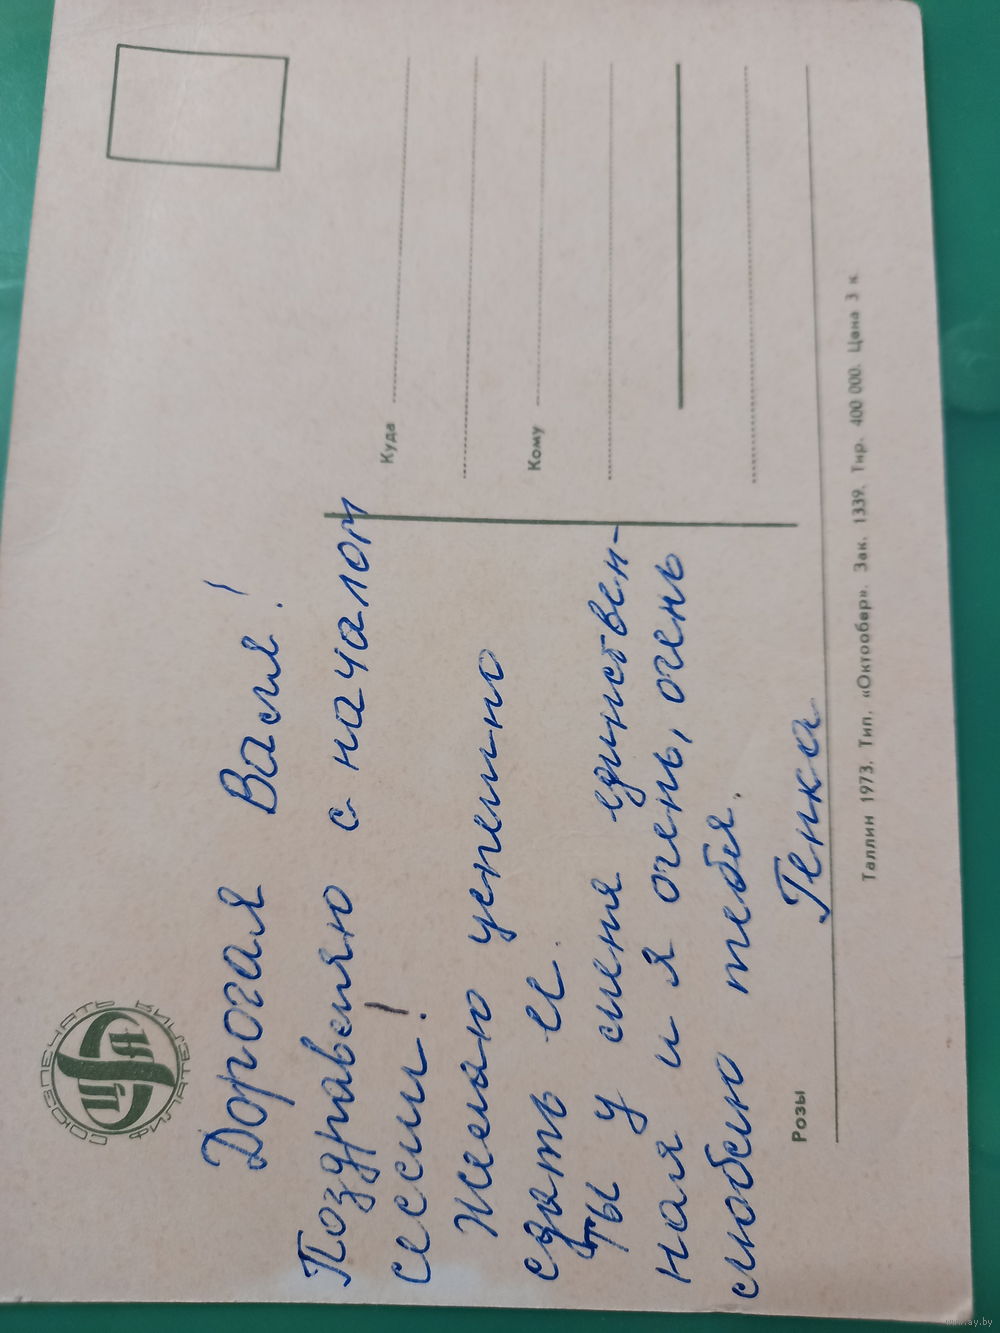 СОЮЗПЕЧАТЬ
ФИЛАТЕЛИЯ
ЦФА
Дорогая Вася!
Поздравляю с началом
сессии!
Желаю успешно
сдать ее.
Ты у меня единствен-
ная и я очень, очень
люблю тебя.
Генка
Куда
Кому
Розы
Таллин 1973. Тип. «Октообер». Зак. 1339. Тир. 400 000. Цена 3 к.
www.ay.by